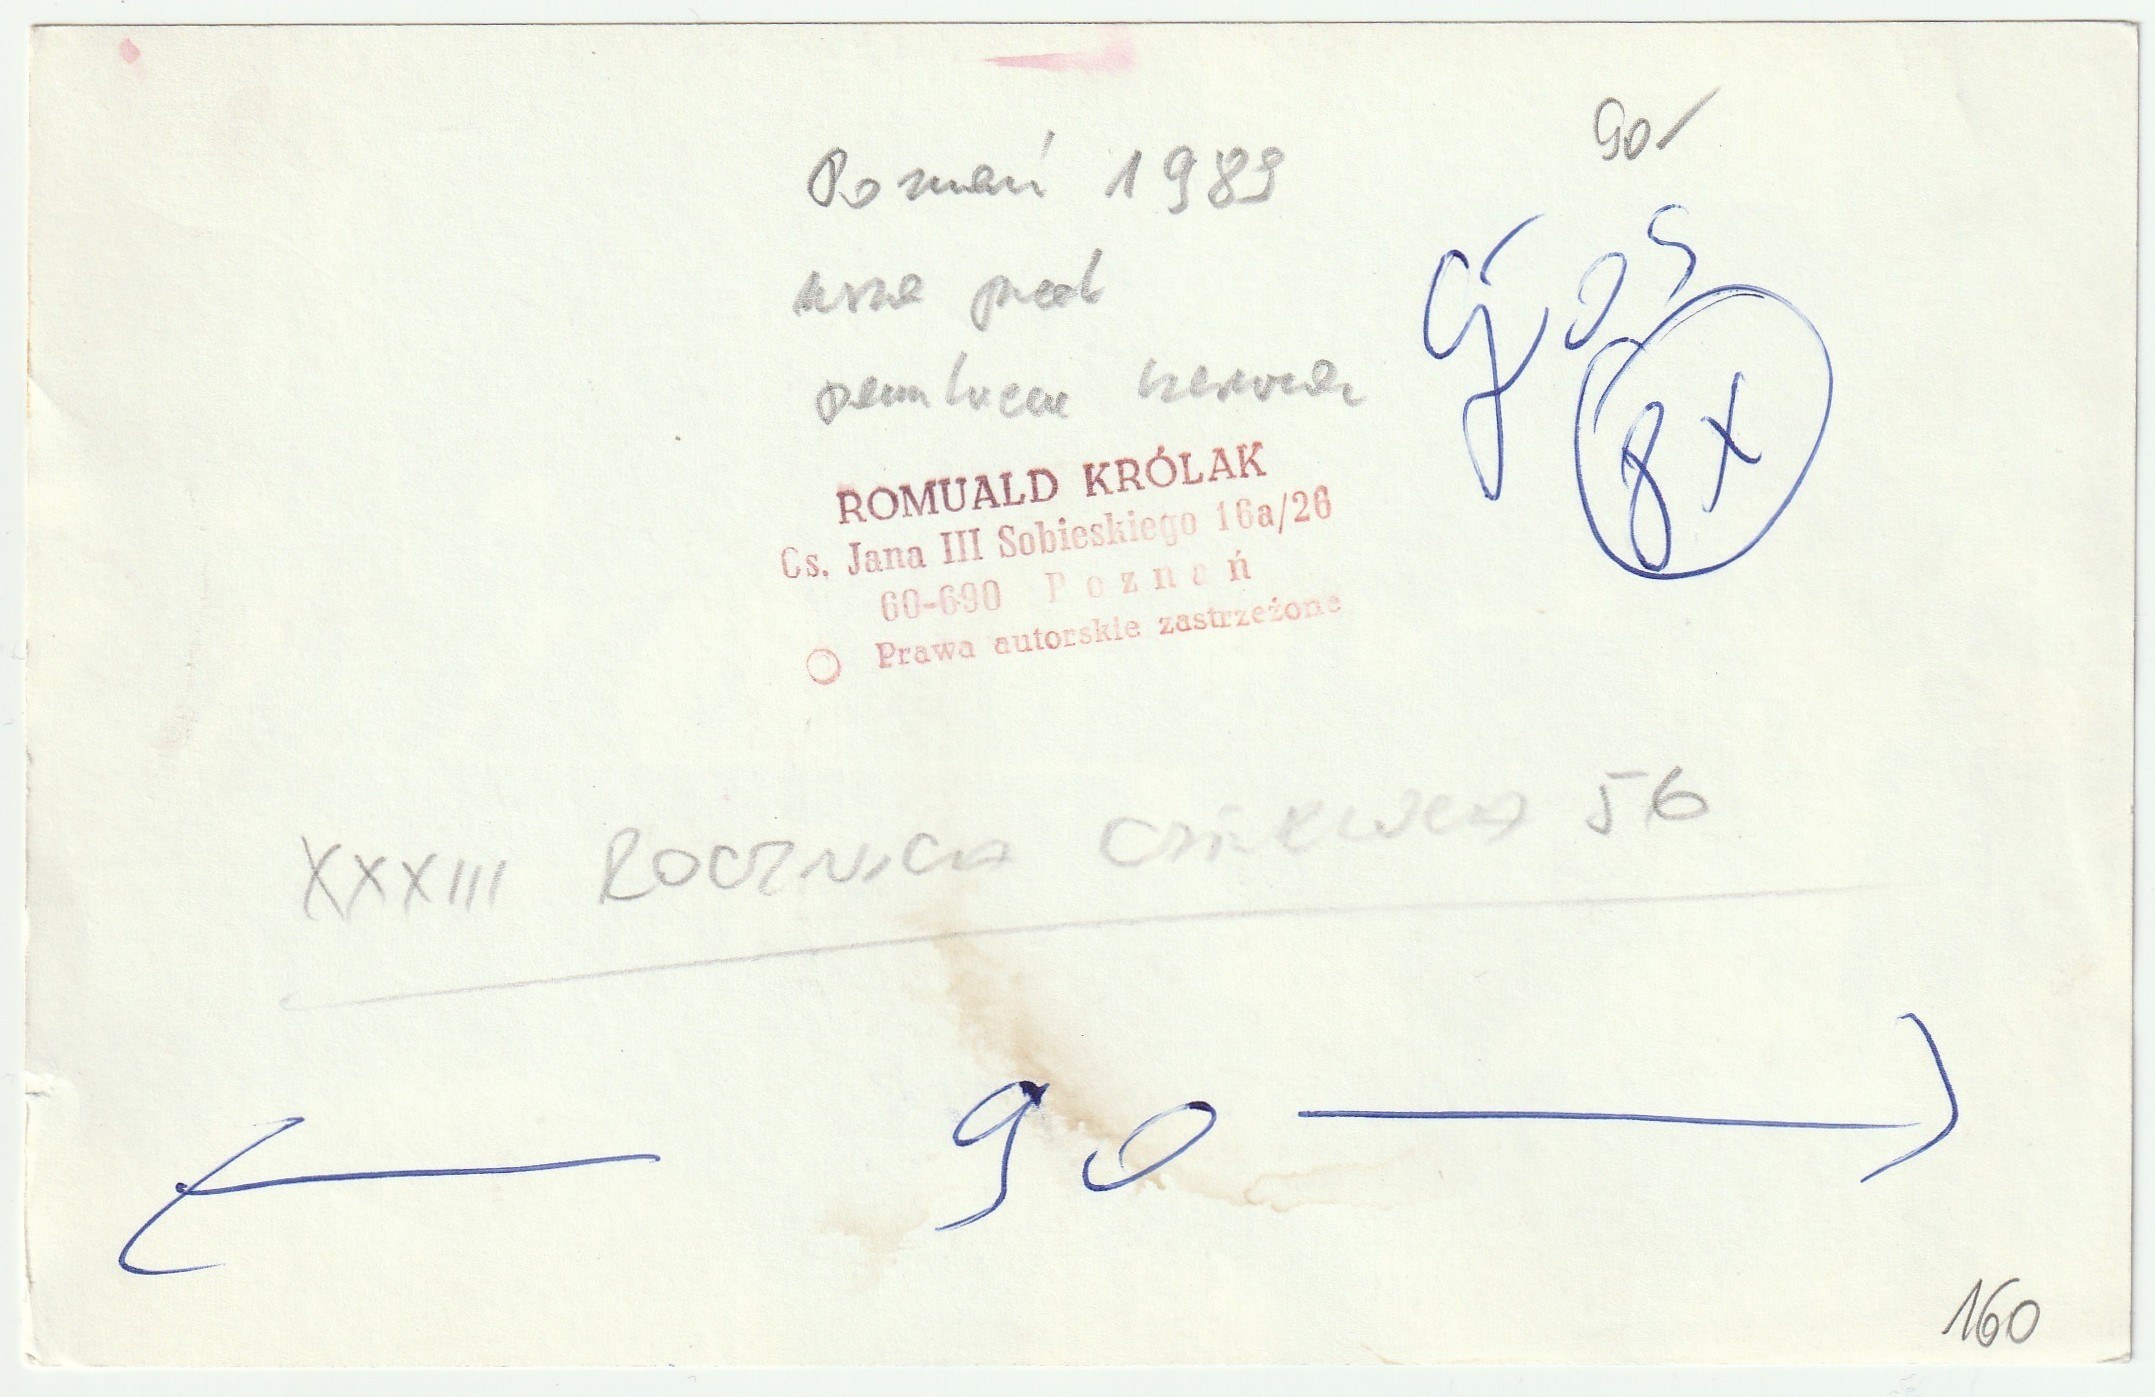 90/
Poznań 1989
msza pod
pomnikiem
8X
ROMUALD KRÓLAK
Os. Jana III Sobieskiego 16a/26
60-690 Poznań
Prawa autorskie zastrzeżone
XXXIII ROCZNICA CZERWCA 56
90
160